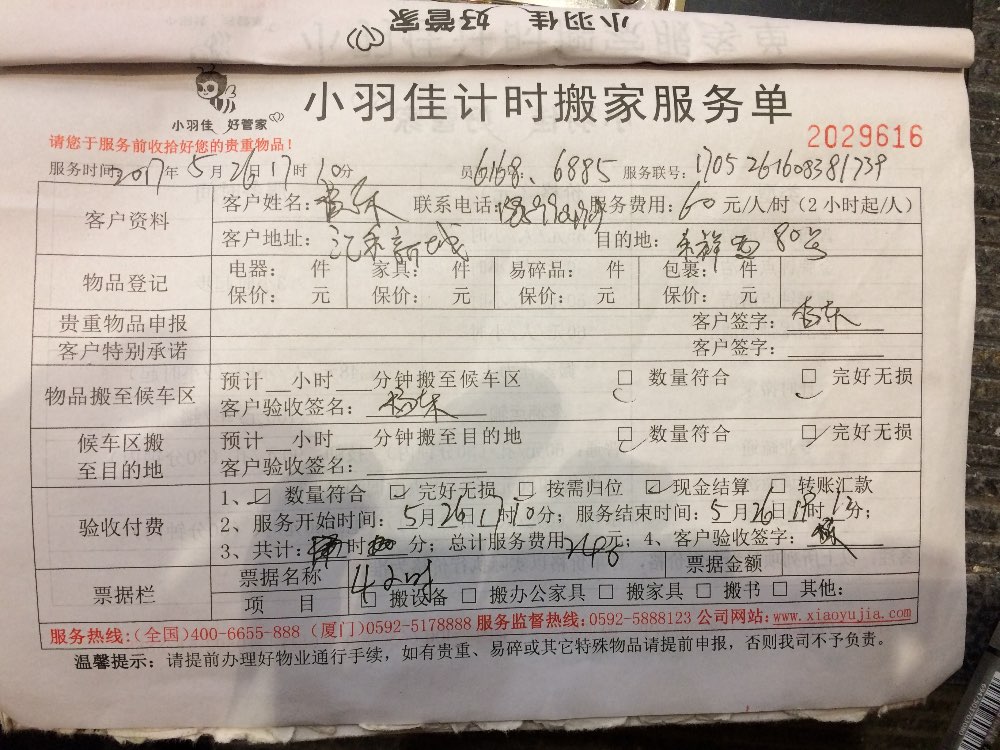 小羽佳 好管家
小羽佳计时搬家服务单
小羽佳 好管家
请您于服务前收拾好您的贵重物品！
2029616
服务时间2017年5月26日17时10分 员6168、6885 服务联号:1705261608381739
客户资料
客户姓名: 联系电话: 服务费用:60元/人/时（2小时起/人）
客户地址: 汇禾新城 目的地: 80号
物品登记
电器: 件 家具: 件 易碎品: 件 包裹: 件
保价: 元 保价: 元 保价: 元 保价: 元
贵重物品申报 客户签字:
客户特别承诺 客户签字:
物品搬至候车区
预计__小时__分钟搬至候车区 □ 数量符合 □ 完好无损
客户验收签名:
候车区搬至目的地
预计__小时__分钟搬至目的地 □ 数量符合 □ 完好无损
客户验收签名:
验收付费
1、☑ 数量符合 ☑ 完好无损 □ 按需归位 ☑ 现金结算 □ 转账汇款
2、服务开始时间: 5月26日17时10分; 服务结束时间: 5月26日19时12分;
3、共计: 时 分; 总计服务费用240元; 4、客户验收签字:
票据栏
票据名称 4小时 票据金额
项 目 □ 搬设备 □ 搬办公家具 □ 搬家具 □ 搬书 □ 其他:
服务热线:(全国)400-6655-888 (厦门)0592-5178888 服务监督热线:0592-5888123 公司网站:www.xiaoyujia.com
温馨提示: 请提前办理好物业通行手续，如有贵重、易碎或其它特殊物品请提前申报，否则我司不予负责。